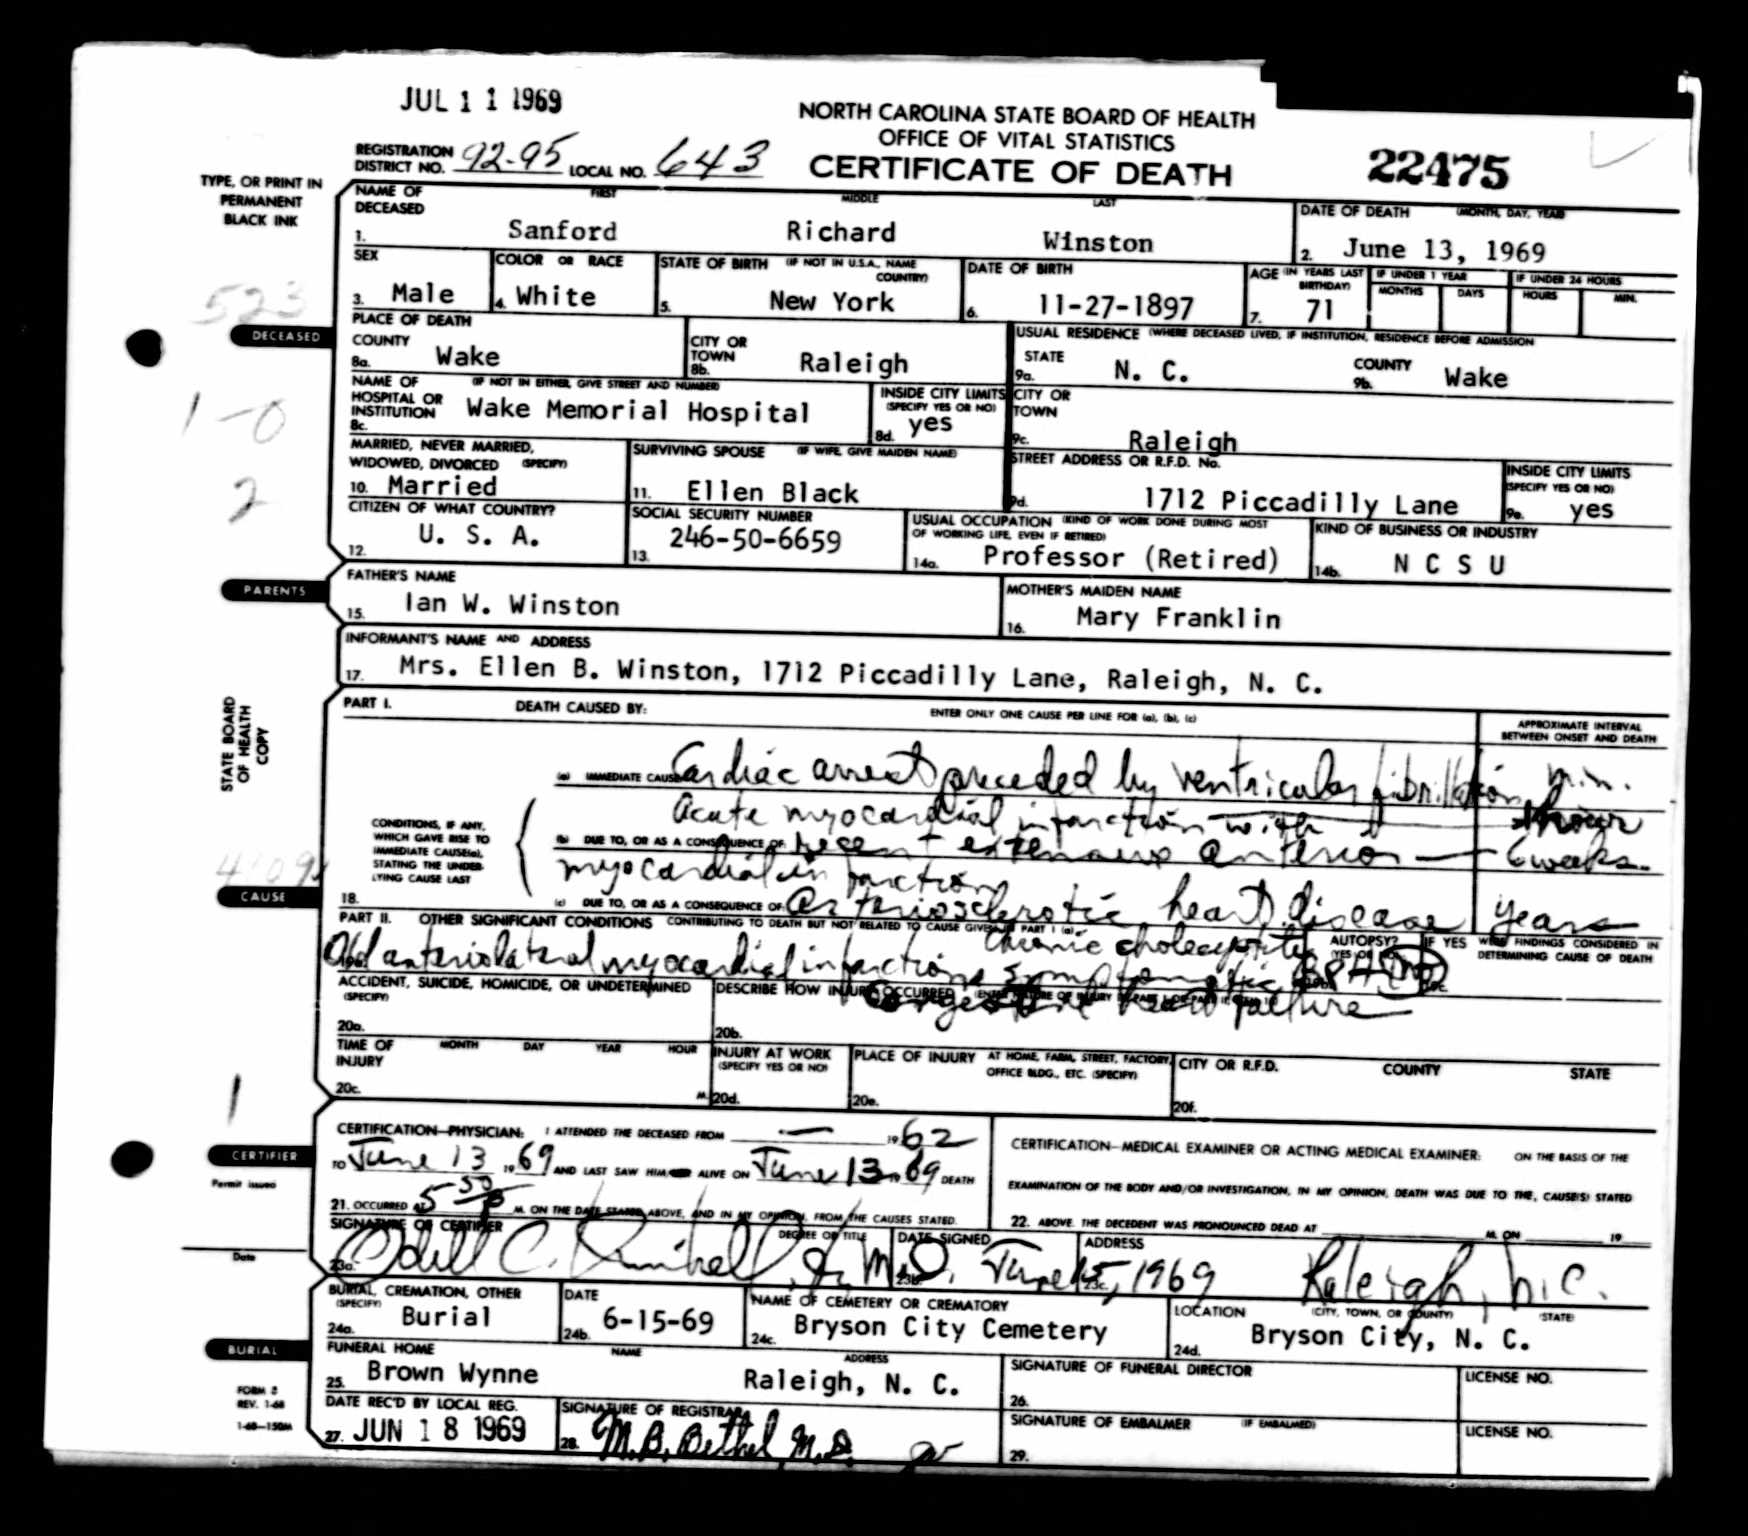 JUL 11 1969
NORTH CAROLINA STATE BOARD OF HEALTH
OFFICE OF VITAL STATISTICS
CERTIFICATE OF DEATH
REGISTRATION DISTRICT NO. 92-95 LOCAL NO. 643
22475
TYPE, OR PRINT IN
PERMANENT
BLACK INK
NAME OF DECEASED FIRST MIDDLE LAST
1. Sanford Richard Winston
DATE OF DEATH (MONTH, DAY, YEAR)
2. June 13, 1969
SEX
3. Male
COLOR OR RACE
4. White
STATE OF BIRTH (IF NOT IN U.S.A., NAME COUNTRY)
5. New York
DATE OF BIRTH
6. 11-27-1897
AGE (IN YEARS LAST BIRTHDAY)
7. 71
IF UNDER 1 YEAR
MONTHS DAYS
IF UNDER 24 HOURS
HOURS MIN.
523
DECEASED
PLACE OF DEATH
COUNTY
8a. Wake
CITY OR TOWN
8b. Raleigh
USUAL RESIDENCE (WHERE DECEASED LIVED, IF INSTITUTION, RESIDENCE BEFORE ADMISSION
STATE
9a. N. C.
COUNTY
9b. Wake
NAME OF HOSPITAL OR INSTITUTION (IF NOT IN EITHER, GIVE STREET AND NUMBER)
8c. Wake Memorial Hospital
INSIDE CITY LIMITS (SPECIFY YES OR NO)
8d. yes
CITY OR TOWN
9c. Raleigh
1-0
2
MARRIED, NEVER MARRIED, WIDOWED, DIVORCED (SPECIFY)
10. Married
SURVIVING SPOUSE (IF WIFE, GIVE MAIDEN NAME)
11. Ellen Black
STREET ADDRESS OR R.F.D. No.
9d. 1712 Piccadilly Lane
INSIDE CITY LIMITS (SPECIFY YES OR NO)
9e. yes
CITIZEN OF WHAT COUNTRY?
12. U. S. A.
SOCIAL SECURITY NUMBER
13. 246-50-6659
USUAL OCCUPATION (KIND OF WORK DONE DURING MOST OF WORKING LIFE, EVEN IF RETIRED)
14a. Professor (Retired)
KIND OF BUSINESS OR INDUSTRY
14b. N C S U
PARENTS
FATHER'S NAME
15. Ian W. Winston
MOTHER'S MAIDEN NAME
16. Mary Franklin
INFORMANT'S NAME AND ADDRESS
17. Mrs. Ellen B. Winston, 1712 Piccadilly Lane, Raleigh, N. C.
STATE BOARD
OF HEALTH
COPY
PART I. DEATH CAUSED BY: ENTER ONLY ONE CAUSE PER LINE FOR (a), (b), (c)
APPROXIMATE INTERVAL BETWEEN ONSET AND DEATH
(a) IMMEDIATE CAUSE Cardiac arrest preceded by ventricular fibrillation min.
Acute myocardial infarction with hour
CONDITIONS, IF ANY, WHICH GAVE RISE TO IMMEDIATE CAUSE(a), STATING THE UNDERLYING CAUSE LAST
(b) DUE TO, OR AS A CONSEQUENCE OF: recent extensive anterior 6 weeks.
myocardial infarction
CAUSE
18. (c) DUE TO, OR AS A CONSEQUENCE OF: Arteriosclerotic heart disease years
PART II. OTHER SIGNIFICANT CONDITIONS CONTRIBUTING TO DEATH BUT NOT RELATED TO CAUSE GIVEN IN PART I (a)
Chronic cholecystitis
19a. Old anteriolateral myocardial infarction, symptomatic BPH
Congestive heart failure
AUTOPSY? (YES OR NO) No
IF YES WERE FINDINGS CONSIDERED IN DETERMINING CAUSE OF DEATH
ACCIDENT, SUICIDE, HOMICIDE, OR UNDETERMINED (SPECIFY)
20a.
DESCRIBE HOW INJURY OCCURRED
20b.
TIME OF INJURY MONTH DAY YEAR HOUR
20c. M.
INJURY AT WORK (SPECIFY YES OR NO)
20d.
PLACE OF INJURY AT HOME, FARM, STREET, FACTORY, OFFICE BLDG., ETC. (SPECIFY)
20e.
CITY OR R.F.D. COUNTY STATE
20f.
1
CERTIFIER
Permit issued
Date
CERTIFICATION—PHYSICIAN: I ATTENDED THE DECEASED FROM — 19 62
TO June 13 19 69 AND LAST SAW HIM ALIVE ON June 13 19 69 DEATH
21. OCCURRED AT 5 50 P M. ON THE DATE STATED ABOVE, AND IN MY OPINION, FROM THE CAUSES STATED.
CERTIFICATION—MEDICAL EXAMINER OR ACTING MEDICAL EXAMINER: ON THE BASIS OF THE
EXAMINATION OF THE BODY AND/OR INVESTIGATION, IN MY OPINION, DEATH WAS DUE TO THE, CAUSE(S) STATED
22. ABOVE. THE DECEDENT WAS PRONOUNCED DEAD AT M. ON 19
SIGNATURE OF CERTIFIER DEGREE OR TITLE
23a. Odell C. Kimbrell, Jr., M.D.
DATE SIGNED
23b. June 15, 1969
ADDRESS
23c. Raleigh, N.C.
BURIAL
BURIAL, CREMATION, OTHER (SPECIFY)
24a. Burial
DATE
24b. 6-15-69
NAME OF CEMETERY OR CREMATORY
24c. Bryson City Cemetery
LOCATION (CITY, TOWN, OR COUNTY) (STATE)
24d. Bryson City, N. C.
FUNERAL HOME NAME ADDRESS
25. Brown Wynne Raleigh, N. C.
SIGNATURE OF FUNERAL DIRECTOR
26.
LICENSE NO.
FORM 8
REV. 1-68
1-68—150M
DATE REC'D BY LOCAL REG.
27. JUN 18 1969
SIGNATURE OF REGISTRAR
28. M.B. Bethel, M.D.
SIGNATURE OF EMBALMER (IF EMBALMED)
29.
LICENSE NO.